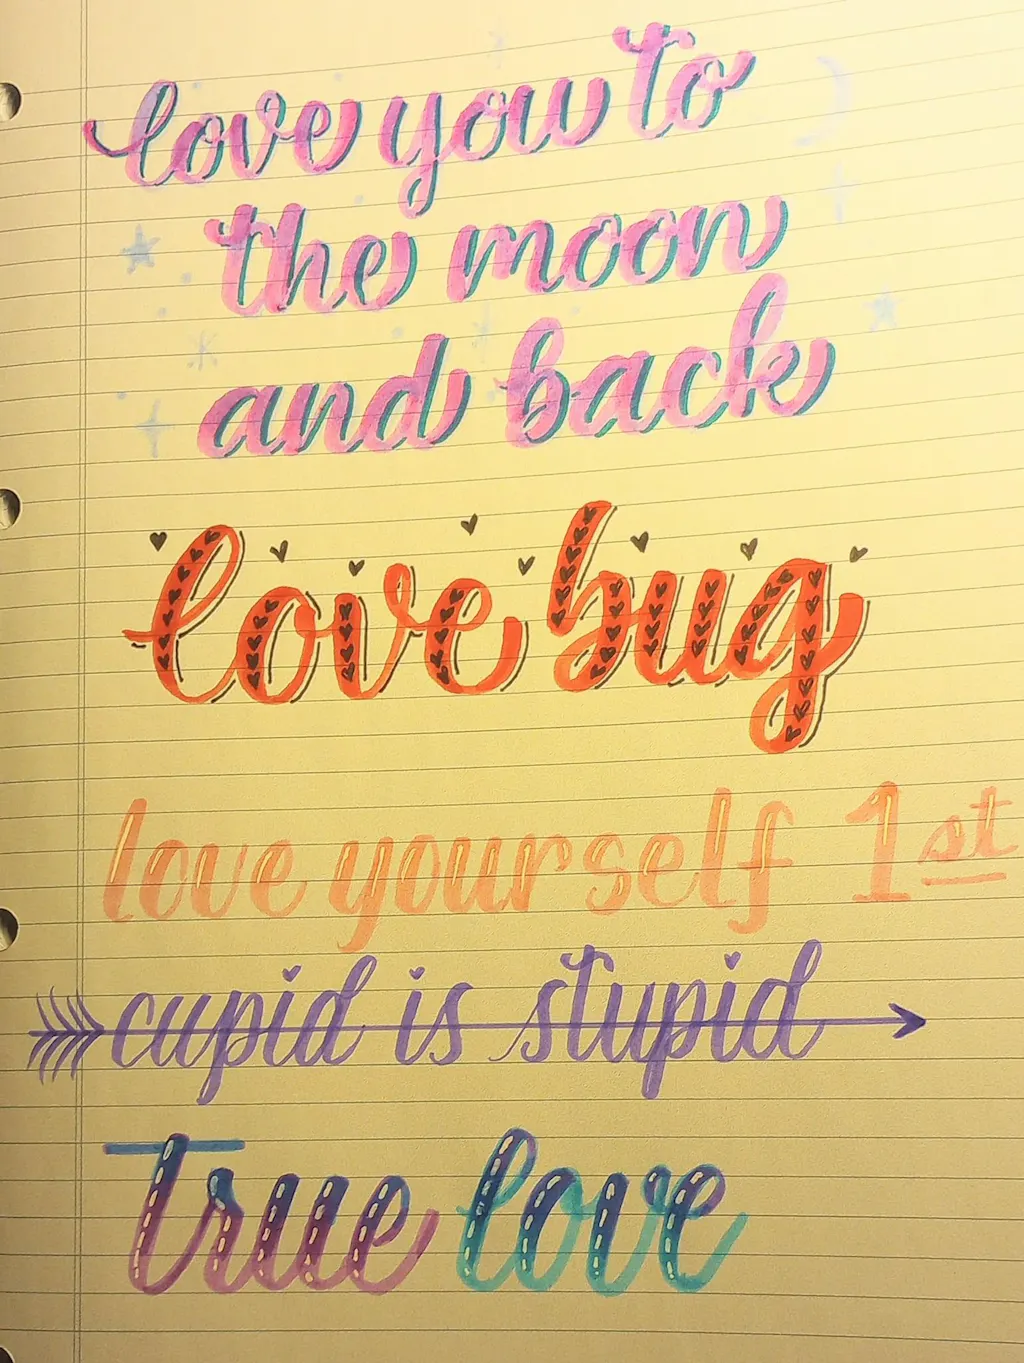 love you to
the moon
and back
love bug
love yourself 1st
cupid is stupid
true love